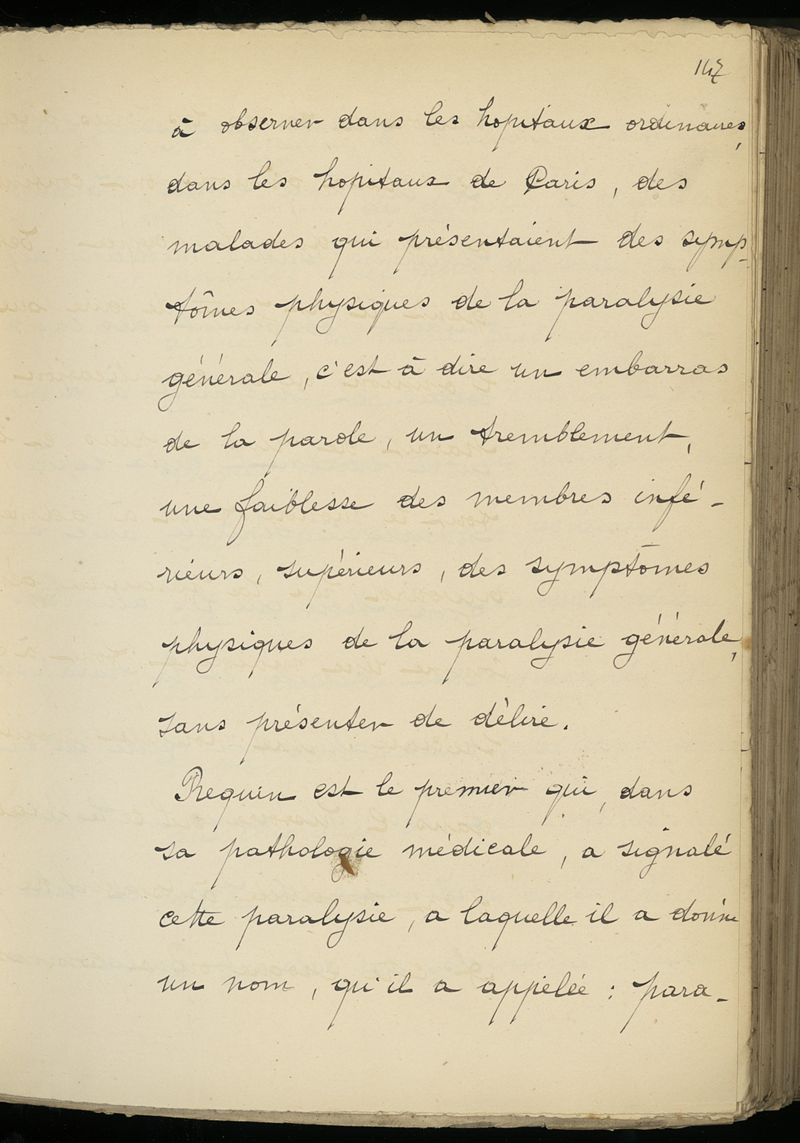 147
à observer dans les hopitaux ordinaires,
dans les hopitaux de Paris, des
malades qui présentaient des symp-
tômes physiques de la paralysie
générale, c'est à dire un embarras
de la parole, un tremblement,
une faiblesse des membres infé-
rieurs, supérieurs, des symptômes
physiques de la paralysie générale,
sans présenter de délire.
Requin est le premier qui, dans
sa pathologie médicale, a signalé
cette paralysie, a laquelle il a donné
un nom, qu'il a appelée : para-